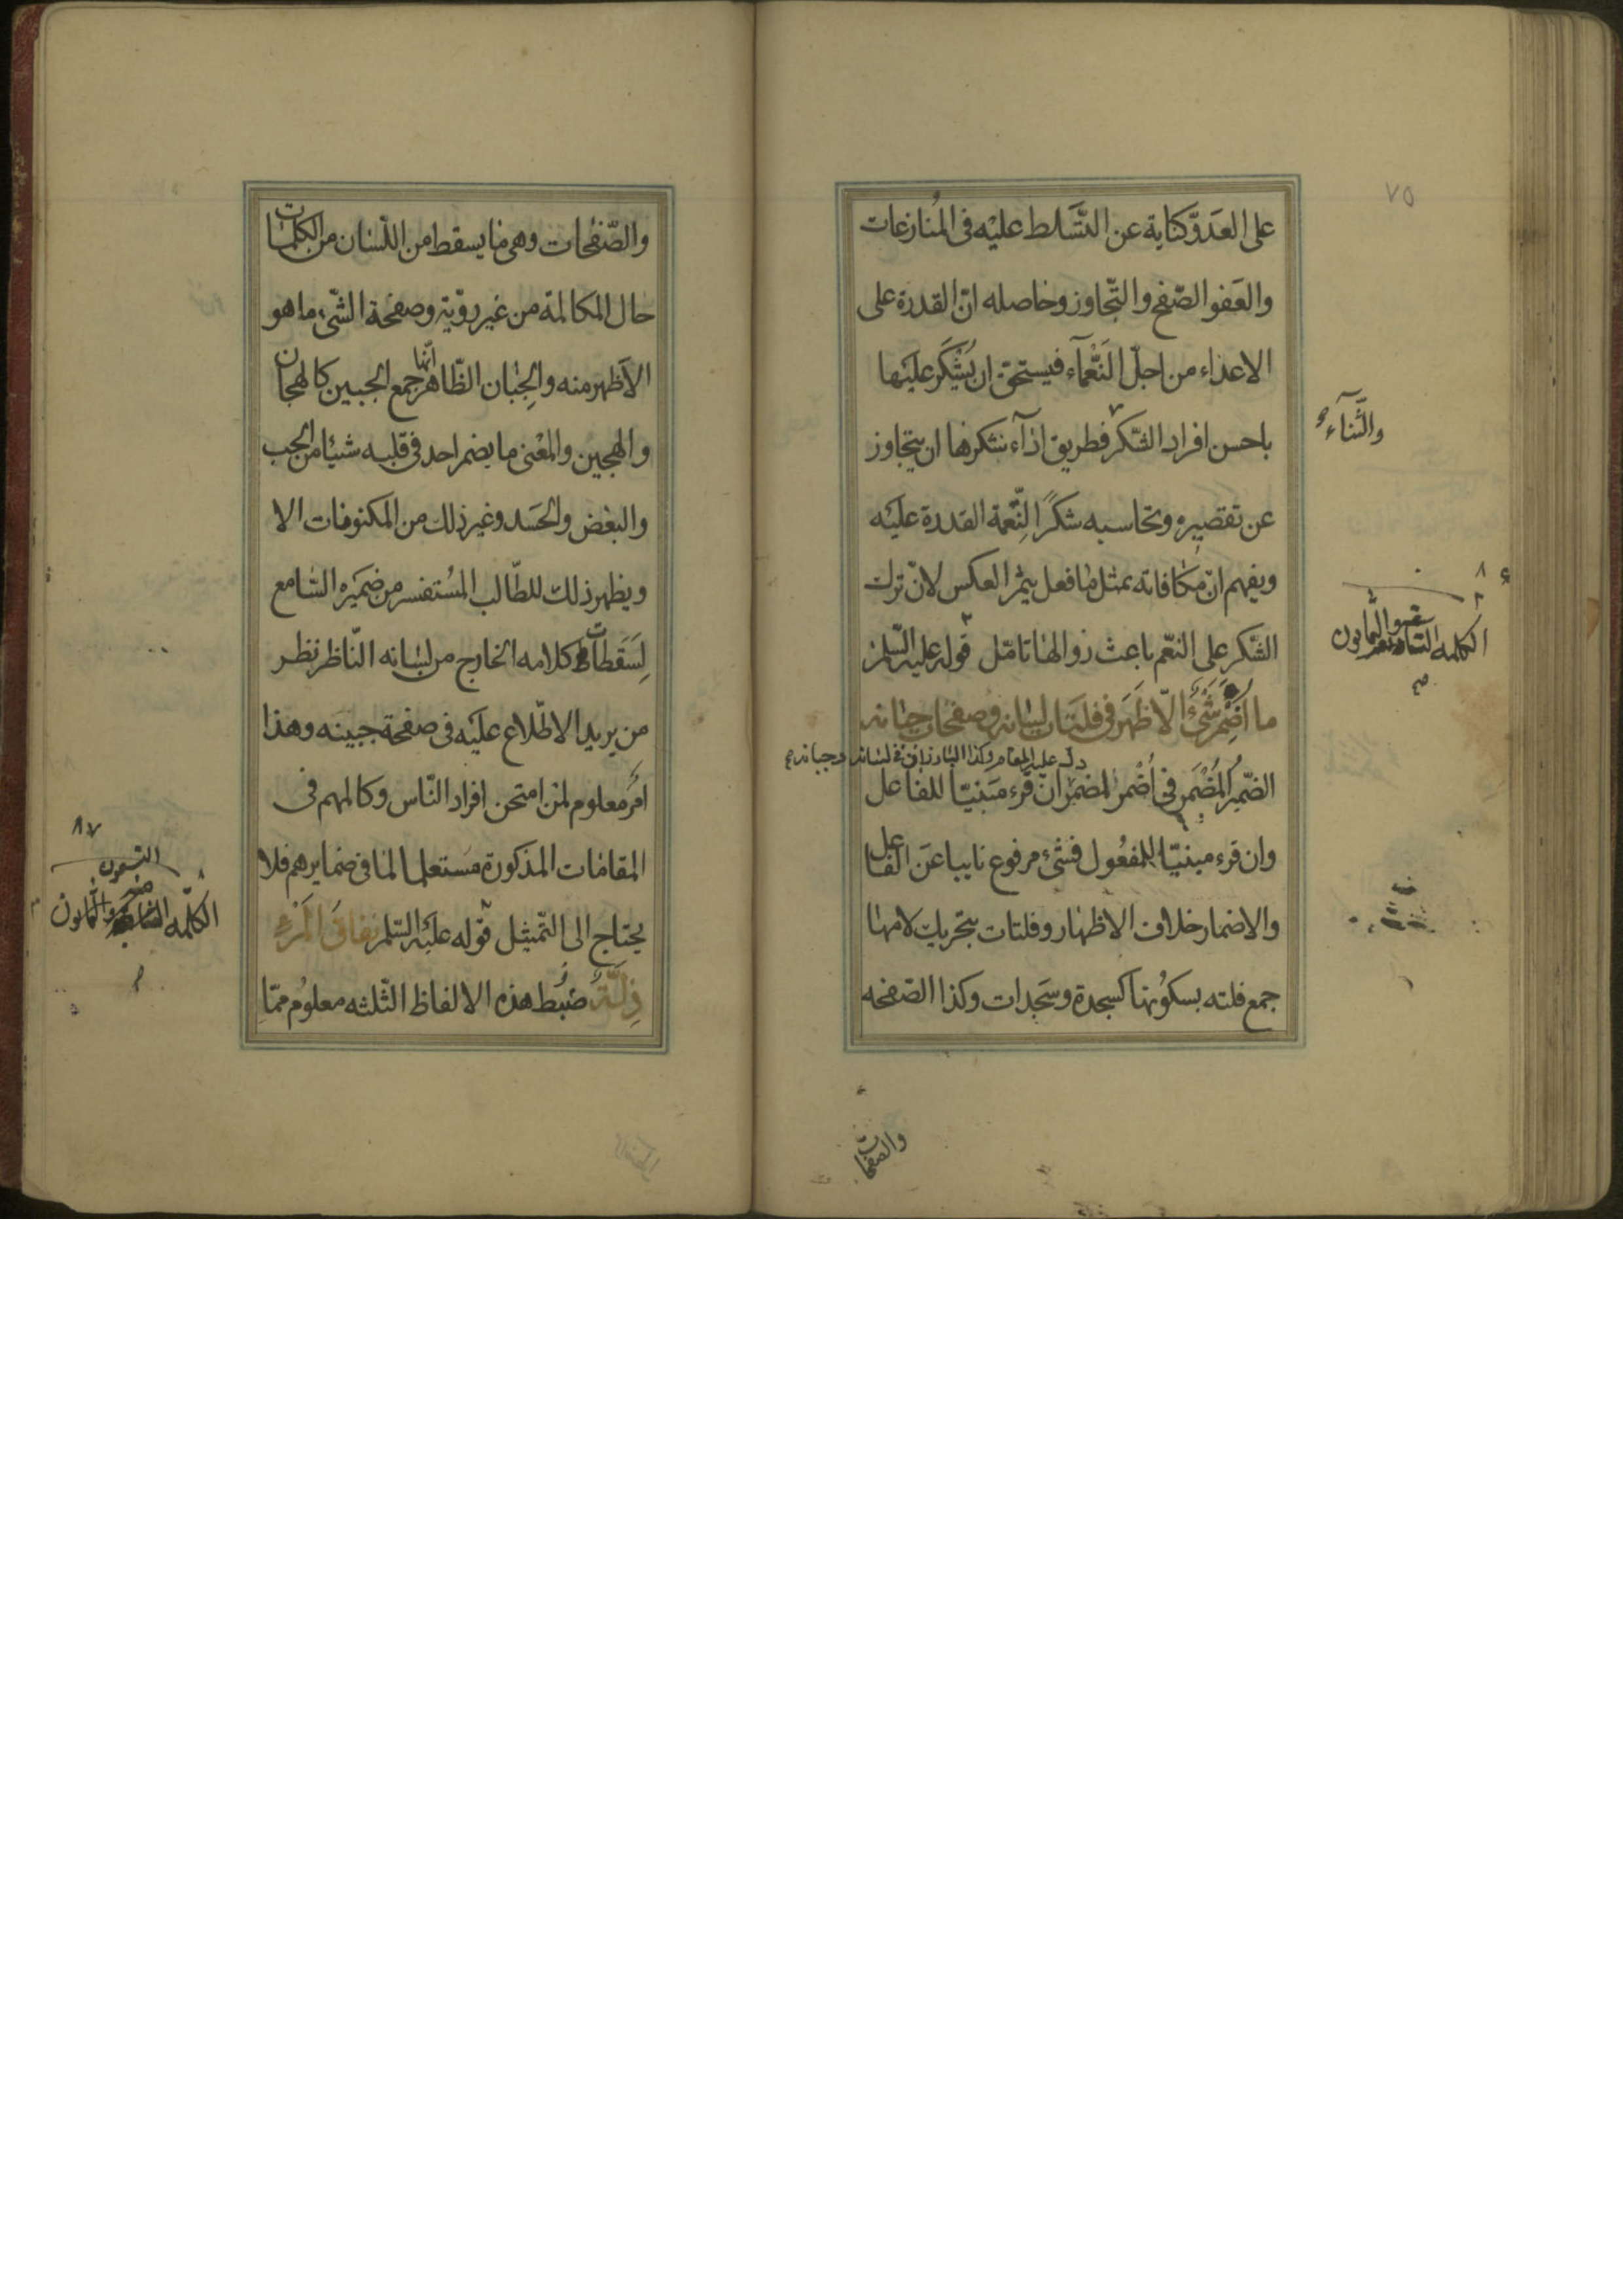 على العدوّ كناية عن التّسلط عليه فى المُنازعات
والعَفو الصّفح والتّجاوز وحاصله انّ القدرة على
الاعداء من اجلّ النَّعْمآء فيستحق ان يُشْكَر عليَها
والثَّنآء
باحسن افراد الشكر فطريق ادآء شكرها ان يتجاوز
عن تقصيره ويحاسبه شكرًا لِنِّعمة القدرة عليَه
ويفهم انّ مكافاته بمثل ما فعل يثمر العكس لانّ ترك
الشّكر على النعّم باعث زوالها تامّل قوله عليه السّلم
الكلمه والثمانون
ما اُضْمِرَ شَيْءٌ الّا ظَهَرَ فى فَلَتَاتِ لِسَانِه وصفحاتِ جِبَانِه
دلّ عليه المقام وكذا البارزان فى لسانه وجبانه
الضّمِير المُضْمَر فى اُضْمر للمضمِر ان قرء مَبنيّا للفاعل
وان قرء مبنيّا للمفعُول فشىء مرفوع نايبا عَن الفاعل
والاضمار خلاف الاظهار وفلتات بتحريك لامها
جمع فلته بسكوُنها كسجدة وسَجدات وكذا الصّفحه
والصفحات
٧٥
والصّفحات وهى ما يسقط من اللّسان من الكلمات
حال المكالمة من غير رويّة وصفحة الشّىء ما هو
الاَظهر منه والجِبان الظّاهر انّها جمع الجبين كالهجان
والهجين والمعْنى ما يضمر احد فى قلبه شيئا من الحب
والبغض والحَسَد وغير ذلك من المكنونات الا
ويظهر ذلك للطّالب المُستفسر من ضمَيره السّامع
لِسَقَطات كلامه الخارج من لسَانه النّاظر نظر
من يريد الاطّلاع عليَه فى صفحة جبينه وهذا
امرَ معلوم لمن امتحن افراد النّاس وكالمهم فى
المقامات المذكورة مَستعلما لما فى ضمايرهم فلا
٨٧
الكلمه والثمانون
يحتاج الى التّمثيل قوله عليَه السّلم نِفاقُ المَرْءِ
ذِلَّةٌ ضبُط هذه الالفاظ الثّلثه معلوُم ممّا